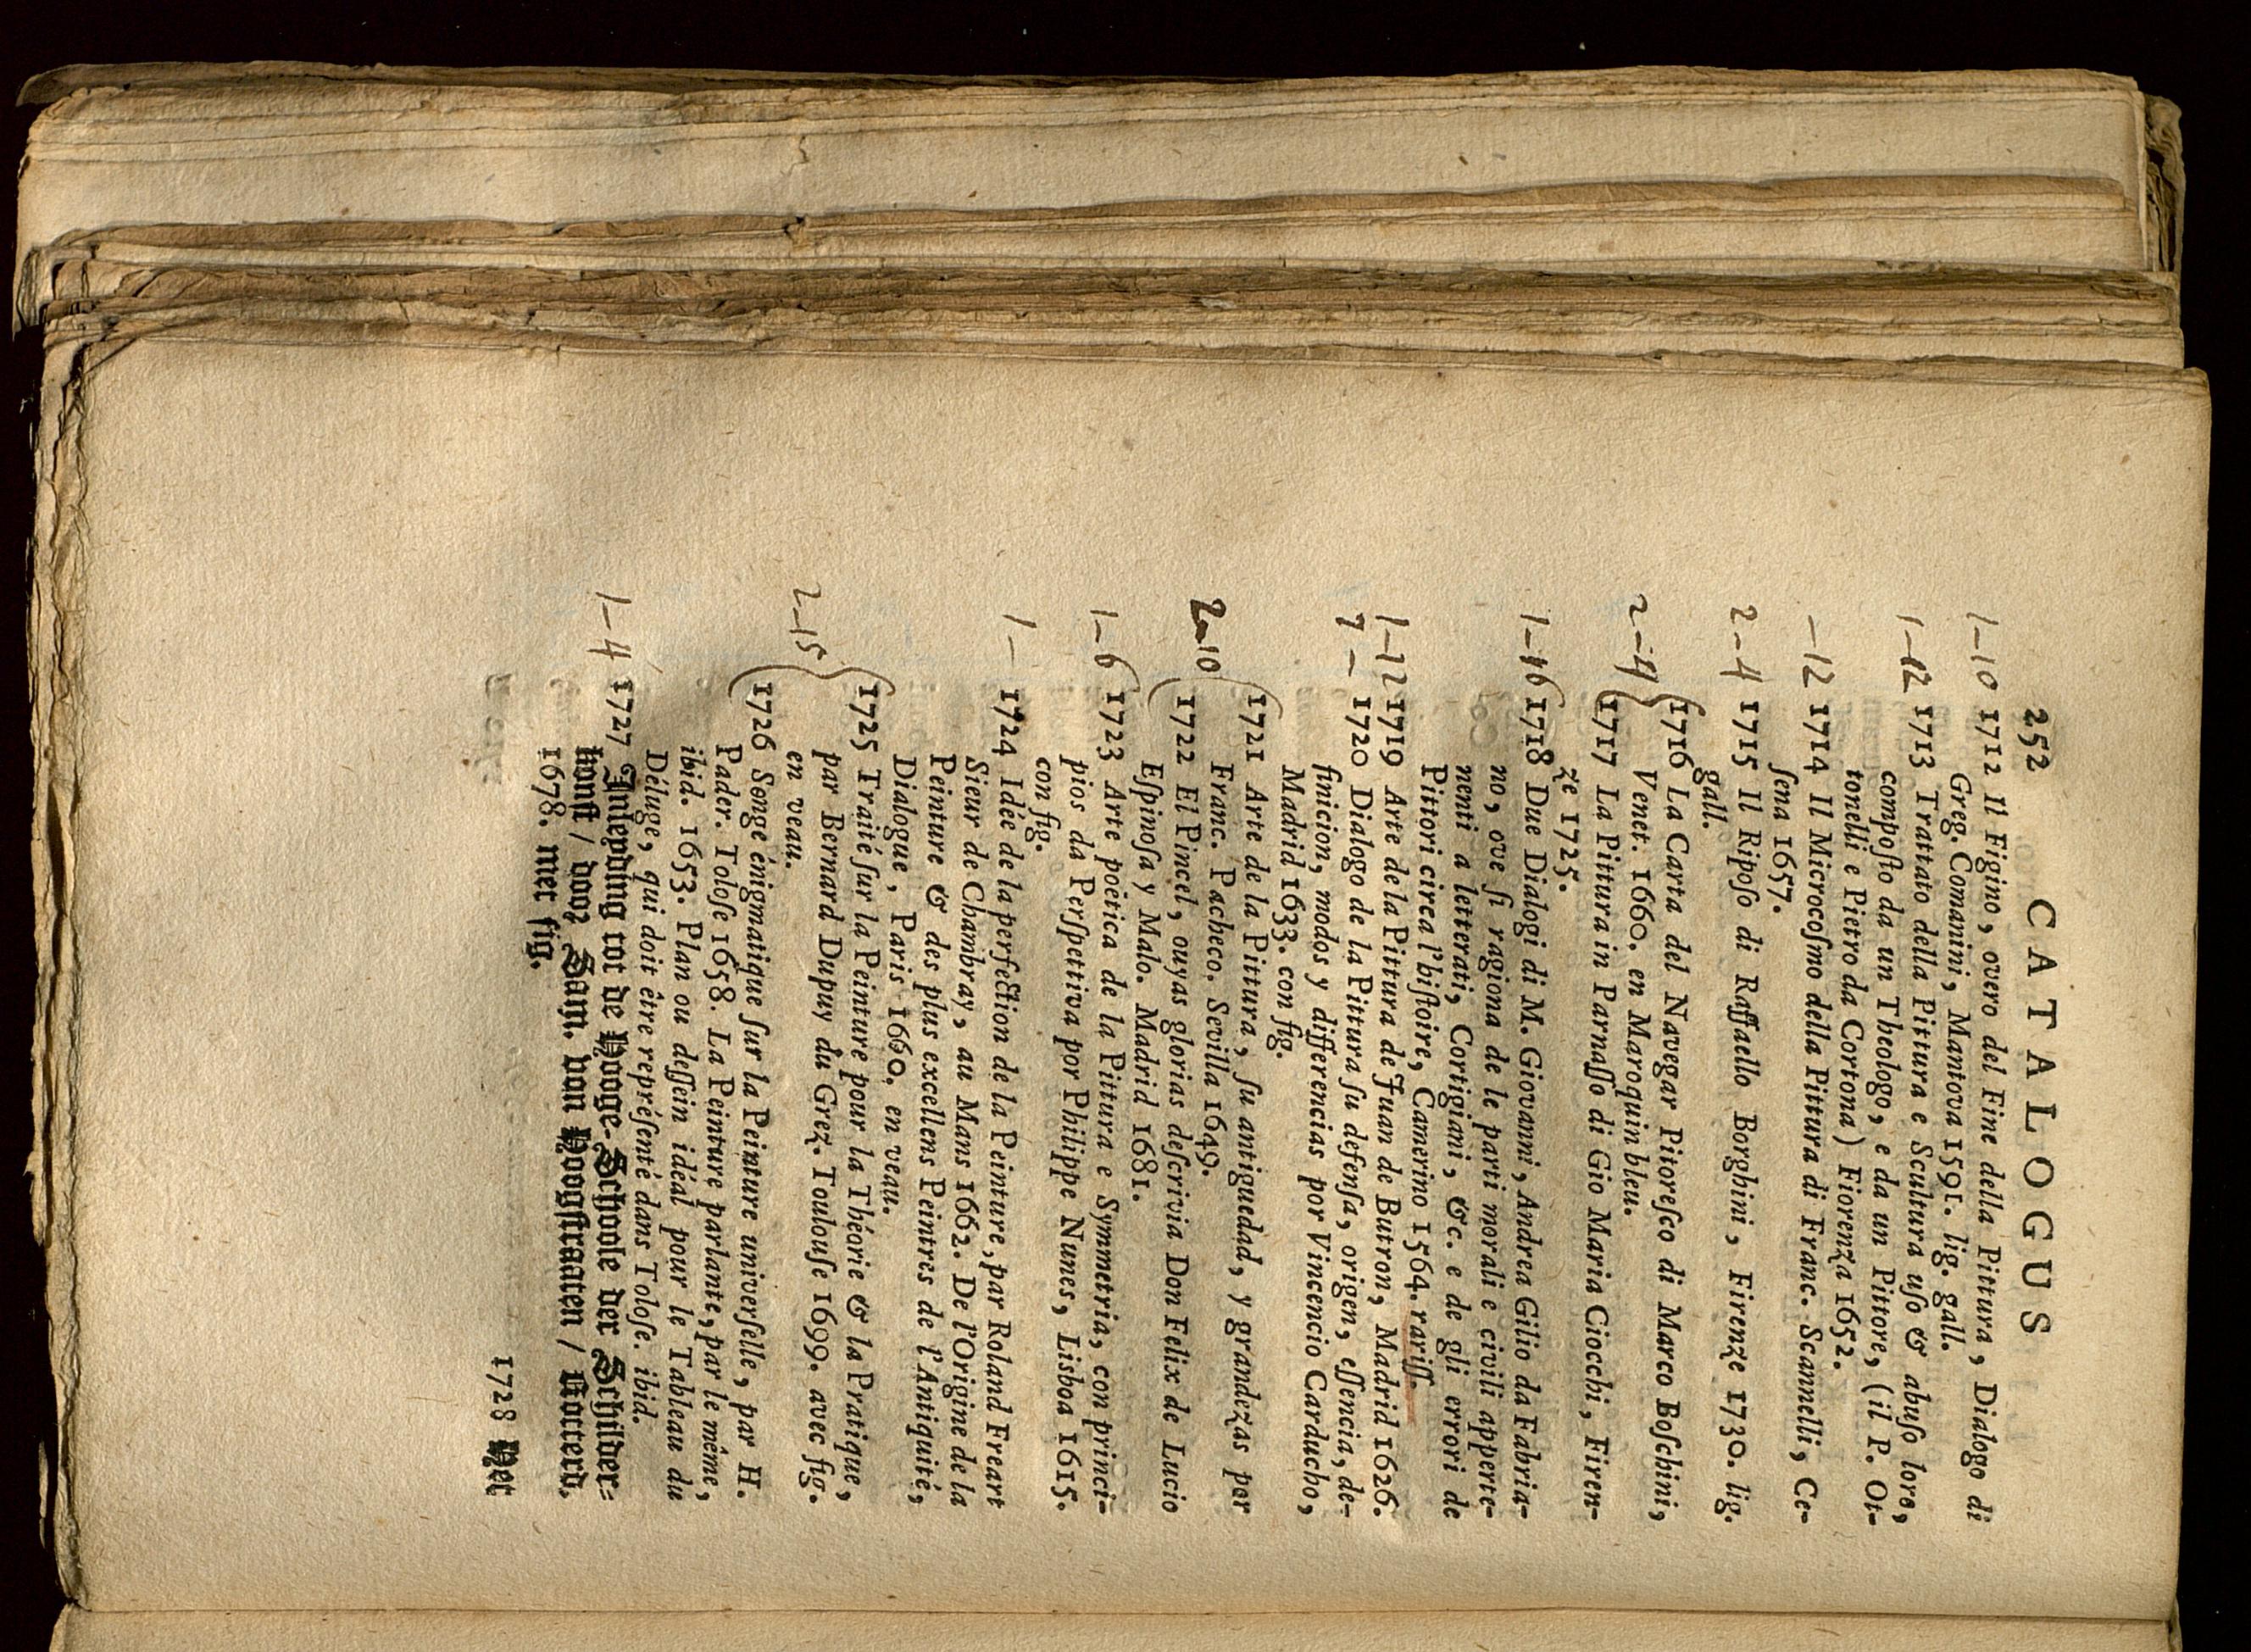 252 CATALOGUS
1-10 1712 Il Figino, overo del Fine della Pittura, Dialogo di
Greg. Comanini, Mantova 1591. lig. gall.
1-12 1713 Trattato della Pittura e Scultura uſo & abuſo loro,
compoſto da un Theologo, e da un Pittore, (il P. Ot-
tonelli e Pietro da Cortona) Fiorenza 1652.
-12 1714 Il Microcoſmo della Pittura di Franc. Scannelli, Ce-
ſena 1657.
2-4 1715 Il Ripoſo di Raffaello Borghini, Firenze 1730. lig.
gall.
1716 La Carta del Navegar Pitoreſco di Marco Boſchini,
Venet. 1660. en Maroquin bleu.
2-4
1717 La Pittura in Parnaſſo di Gio Maria Ciocchi, Firen-
ze 1725.
1-16 1718 Due Dialogi di M. Giovanni, Andrea Gilio da Fabria-
no, ove ſi ragiona de le parti morali e civili apperte-
nenti a letterati, Cortigiani, &c. e de gli errori de
Pittori circa l'hiſtoire, Camerino 1564. rariſſ.
1-12 1719 Arte de la Pittura de Juan de Butron, Madrid 1626.
7- 1720 Dialogo de la Pittura ſu defenſa, origen, eſſencia, de-
finicion, modos y differencias por Vincencio Carducho,
Madrid 1633. con fig.
1721 Arte de la Pittura, ſu antiguedad, y grandezas por
Franc. Pacheco. Sevilla 1649.
2-10
1722 El Pincel, ouyas glorias deſcrivia Don Felix de Lucio
Eſpinoſa y Malo. Madrid 1681.
1-6 1723 Arte poëtica de la Pittura e Symmetria, con princi-
pios da Perſpettiva por Philippe Nunes, Lisboa 1615.
con fig.
1- 1724 Idée de la perfection de la Peinture, par Roland Freart
Sieur de Chambray, au Mans 1662. De l'Origine de la
Peinture & des plus excellens Peintres de l'Antiquité,
Dialogue, Paris 1660. en veau.
1725 Traité ſur la Peinture pour la Théorie & la Pratique,
par Bernard Dupuy du Grez. Toulouſe 1699. avec fig.
en veau.
2-15
1726 Songe énigmatique ſur la Peinture univerſelle, par H.
Pader. Toloſe 1658. La Peinture parlante, par le même,
ibid. 1653. Plan ou deſſein idéal pour le Tableau du
Déluge, qui doit être repréſenté dans Toloſe. ibid.
1-4 1727 Inleyding tot de Hooge-Schoole der Schilder-
konſt / door Sam. van Hoogſtraaten / Rotterd.
1678. met fig.
1728 Het